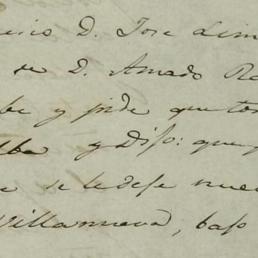 D. Jose Lim
se D. Amado Ro
be y pide que ton
y Dijo: que
se le dese nue
Villanueva, bajo